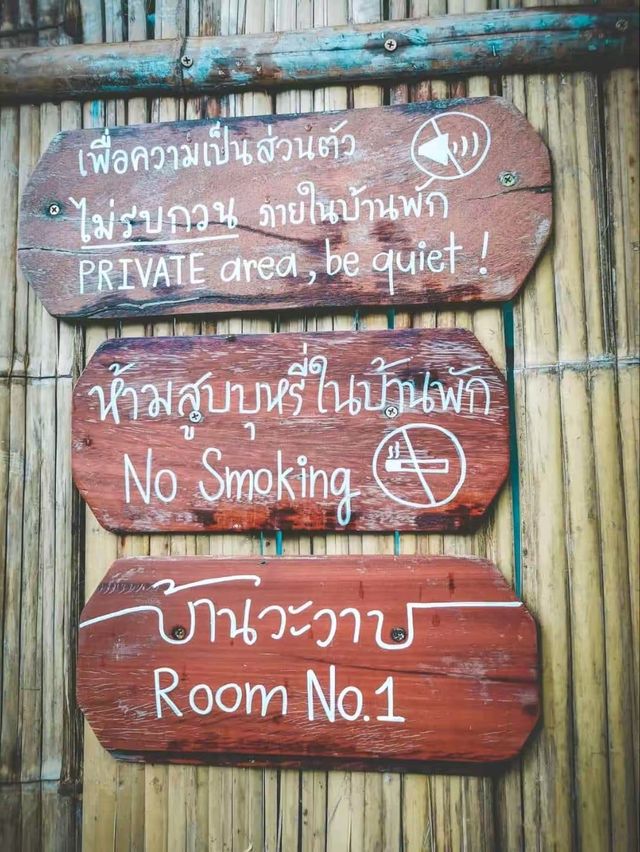 เพื่อความเป็นส่วนตัว
ไม่รบกวน ภายในบ้านพัก
PRIVATE area, be quiet !
ห้ามสูบบุหรี่ในบ้านพัก
No Smoking
บ้านวะวาบ
Room No.1